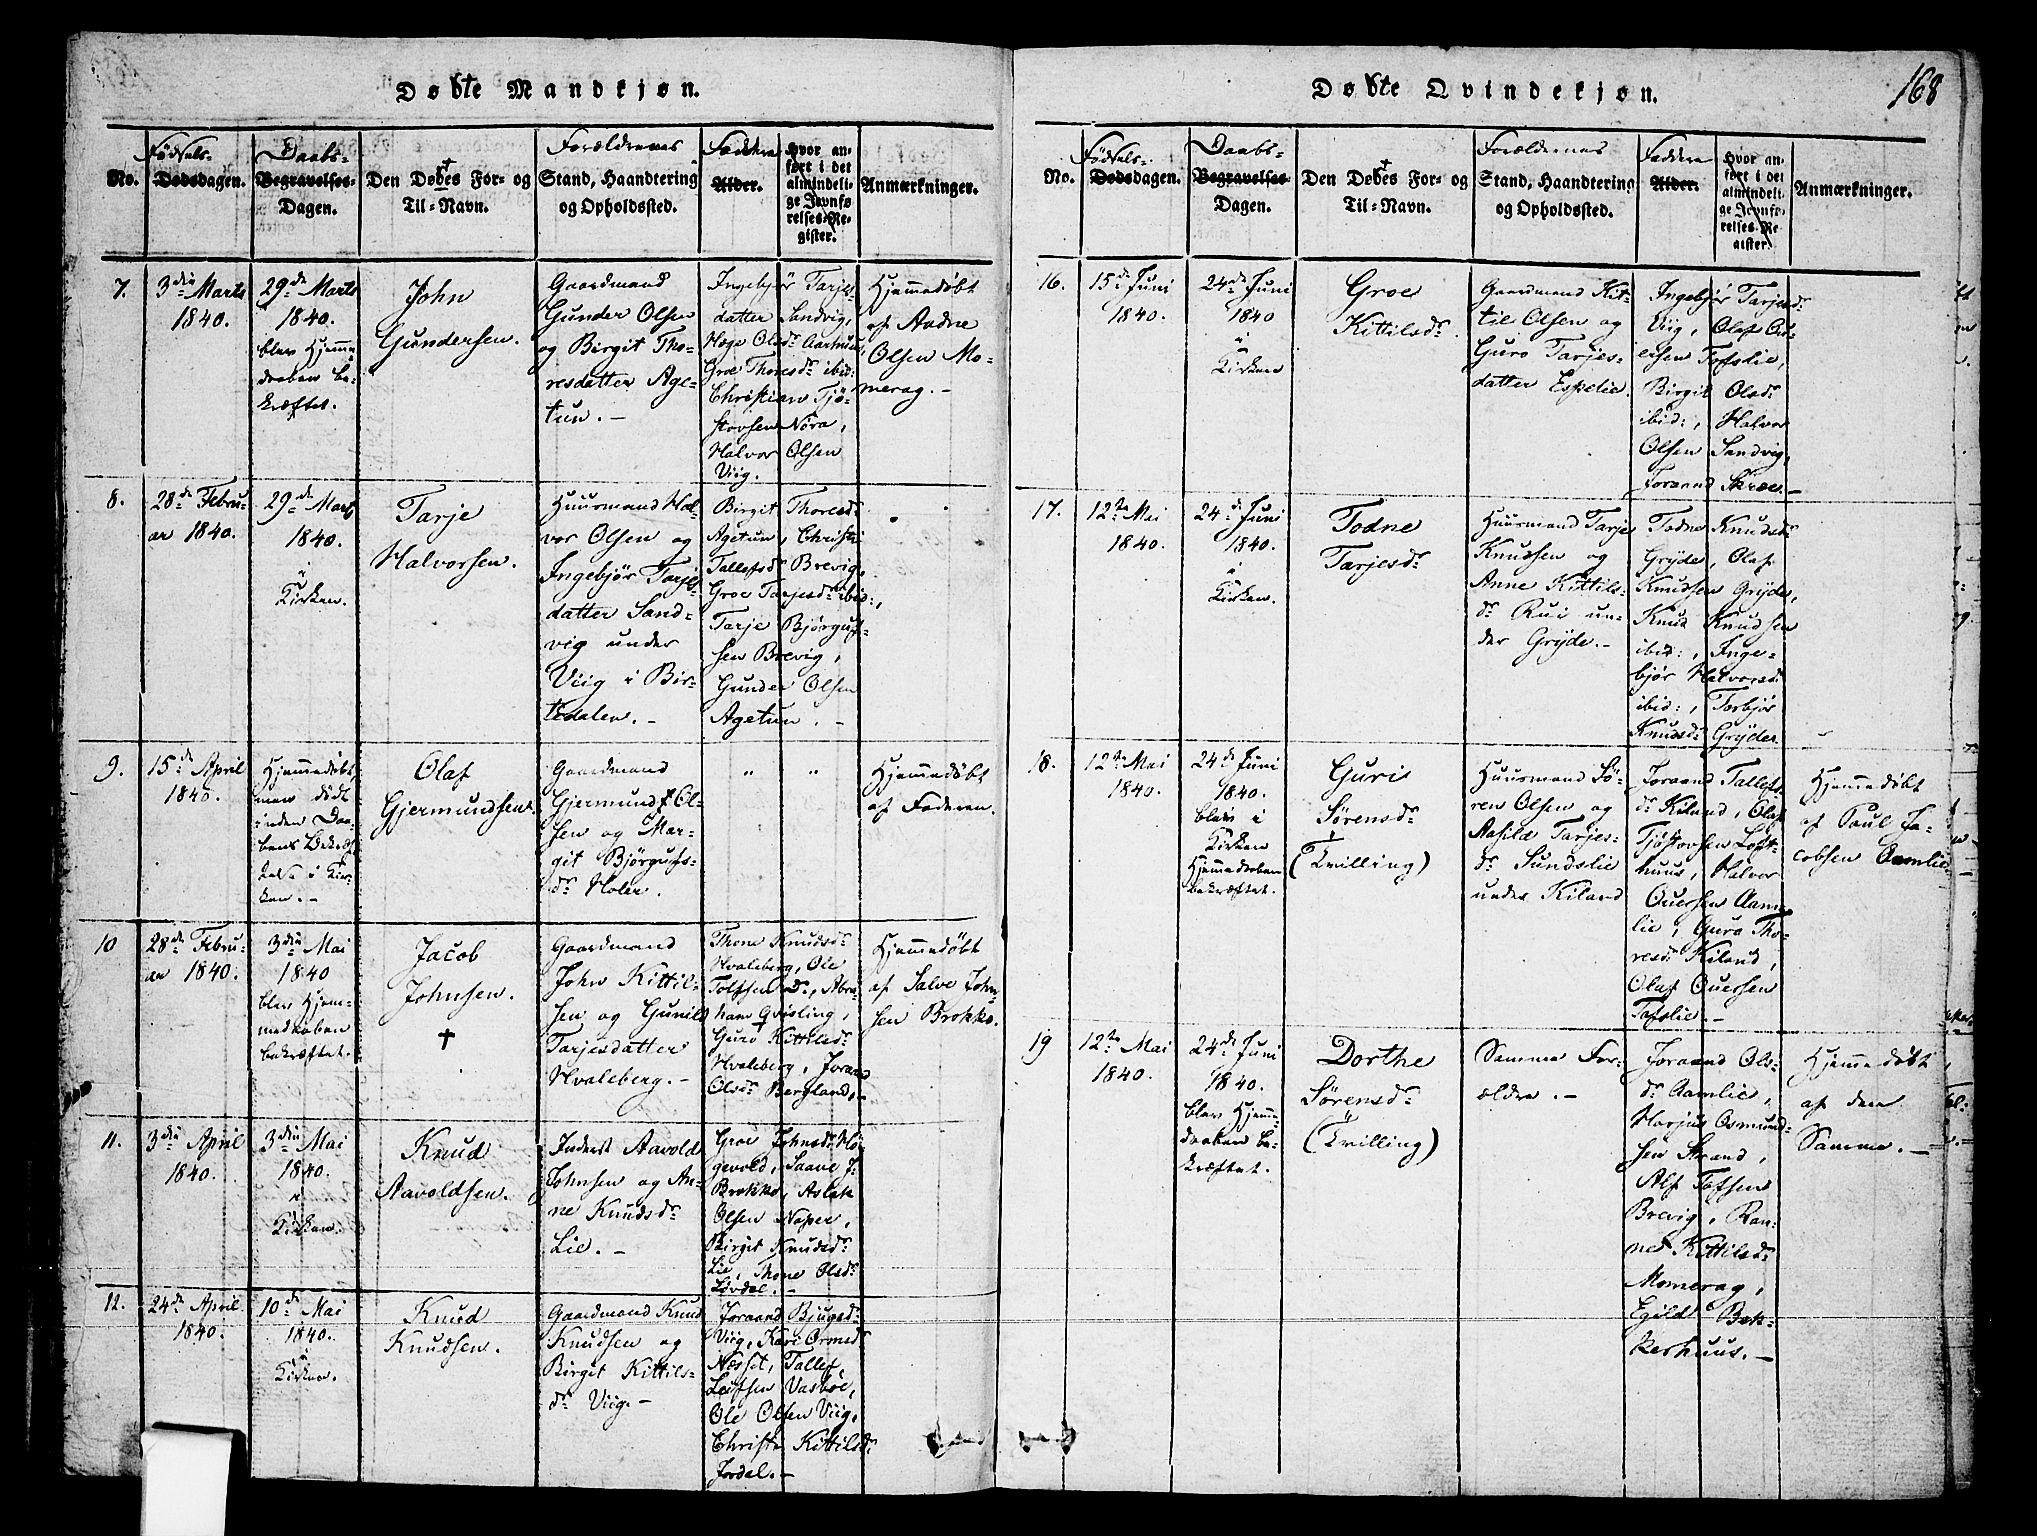 Døbte Mandkjøn.
No.
Fødsels-
Dødsdagen.
Daabs-
Begravelses-
Dagen.
Den Døbtes For- og
Til-Navn.
Forældrenes
Stand, Haandtering
og Opholdssted.
Faddere
Alder.
Hvor an-
ført i det
almindeli-
ge Jevnfø-
relses-Re-
gister.
Anmærkninger.
7.
3die Marts
1840.
29de Marts
1840.
blev Hjemme
daaben be-
kræftet.
John
Gundersen.
Gaardmand
Gunder Olsen
og Birgit Tho-
resdatter Age-
tun. -
Ingebjør Tarjes-
datter Sandvig,
Hæge Olsdr Aarhuus,
Groe Thoresdr ibid:
Christian Tjø-
stovsen Nøra,
Halvor Olsen
Viig.
Hjemmedøbt
af Aadne
Olsen Mo-
merag. -
8.
28de Febru-
ar 1840.
29de Marts
1840.
i
Kirken.
Tarje
Halvorsen.
Huusmand Hal-
vor Olsen og
Ingebjør Tarjes
datter Sand-
vig under
Viig i Bir-
tedalen. -
Birgit Thoresdr
Agetun, Christi
Tallefsdr Brevig,
Groe Tarjesdr ibid:,
Tarje Bjørguf-
sen Brevig,
Gunder Olsen
Agetun. -
9.
15de April
1840.
Hjemmedøbt,
men døde
inden Daa-
bens Bekræf-
telse i Kir-
ken. -
Olaf
Gjermundsen
Gaardmand
Gjermund Ol-
sen og Mar-
git Bjørgufs-
dr Holer.
" "
Hjemmedøbt
af Faderen.
10
28de Febru-
ar 1840.
3die Mai
1840
blev Hjem-
medaaben
bekræftet.
Jacob
Johnsen.
†
Gaardmand
John Kittil-
sen og Gunild
Tarjesdatter
Hvaleberg. -
Thone Knudsdr
Hvaleberg, Ole
Abra-
ham Qvisling,
Guro Kittilsdr
Hvaleberg, Joraand
Olsdr Bergland. -
Hjemmedøbt
af Salve John-
sen Brokke.
11.
3die April
1840.
3die Mai
1840.
i
Kirken.
Knud
Aavoldsen.
Inderst Aavold
Johnsen og An-
ne Knudsdr
Lie. -
Groe Johnsdr
Brokke, Aslak
Olsen Naper,
Birgit Knudsdr
Lie, Thone Olsdr
Løvdal. -
12.
24de April
1840.
10de Mai
1840.
i
Kirken.
Knud
Knudsen.
Gaardmand Knud
Knudsen og
Birgit Kittils-
dr Viig. -
Joraand Bjugsdr
Viig, Kari Ormsdr
Næsset, Tallef
Leifsen Vasbøe,
Ole Olsen Viig,
Christi Kittilsdr
Jordal. -
Døbte Qvindekjøn.
168
No.
Fødsels-
Dødsdagen.
Daabs-
Begravelses
Dagen.
Den Døbtes For- og
Til-Navn.
Forældrenes
Stand, Haandtering
og Opholdssted.
Faddere
Alder.
Hvor an-
ført i det
almindeli-
ge Jevnfø-
relses-Re-
gister.
Anmærkninger.
16.
15de Juni
1840.
24de Juni
1840
i
Kirken
Groe
Kittilsdr
Gaardmand Kit-
til Olsen og
Guro Tarjes-
datter Espelie.
Ingebjør Tarjesdr
Viig, Olaf Ou-
ersen Tofslie,
Birgit Olsdr
ibid:, Halvor
Olsen Sandvig,
Joraand Skree. -
17.
12te Mai
1840.
24de Juni
1840.
i
Kirken.
Todne
Tarjesdr
Huusmand Tarje
Knudsen og
Anne Kittils-
dr Rui un-
der Gryde. -
Todne Knudsdr
Gryde, Olaf
Knudsen Gryde,
Knud Knudsen
ibid:, Inge-
bjør Halvorsdr
ibid:, Torbjør
Knudsdr Gryde.
18.
12te Mai
1840.
24de Juni
1840.
blev i
Kirken
Hjemmedaaben
bekræftet.
Guri
Sørensdr
(Tvilling)
Huusmand Sø-
ren Olsen og
Aasild Tarjes-
dr Sundslie
under Kiland
Joraand Tallefs-
dr Kiland, Olaf
Tjøstovsen Loft-
huus, Halvor
Ouersen Aam-
lie, Guro Tho-
resdr Kiland,
Olaf Ouersen
Tofslie. -
Hjemmedøbt
af Paul Ja-
cobsen Aamlie
19
12te Mai
1840.
24de Juni
1840.
blev Hjemme-
daaben be-
kræftet.
Dorthe
Sørensdr
(Tvilling)
Samme For-
ældre. -
Joraand Ols-
dr Aamlie,
Osmund-
sen Strand,
Alf Tofsen
Brevig, Ran-
nei Kittilsdr
Momerag,
Egild Bak-
kerhuus. -
Hjemmedøbt
af den
Samme. -